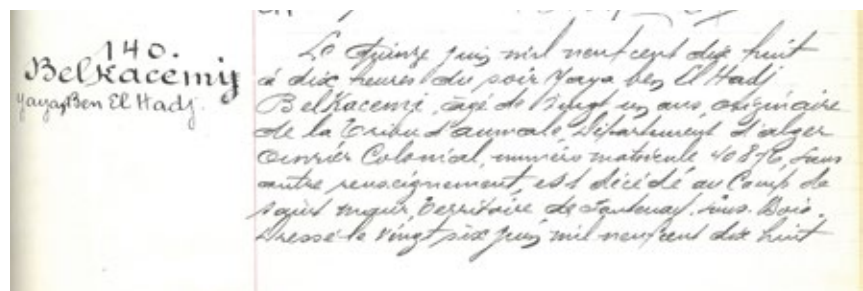 140.
Belkacemi
Yaya, Ben El Hadj.
Le Quinze juin mil neuf cent dix huit
à dix heures du soir Yaya ben El Hadj
BelKacemi, agé de Vingt un ans originaire
de la Tribu d'aumale, Département d'alger
Ouvrier Colonial, numéro matricule 40876, sans
autre renseignement, est décédé au Camp de
saint maur, Territoire de Fontenay. sous. Bois.
Dressé le vingt six juin mil neuf cent dix huit